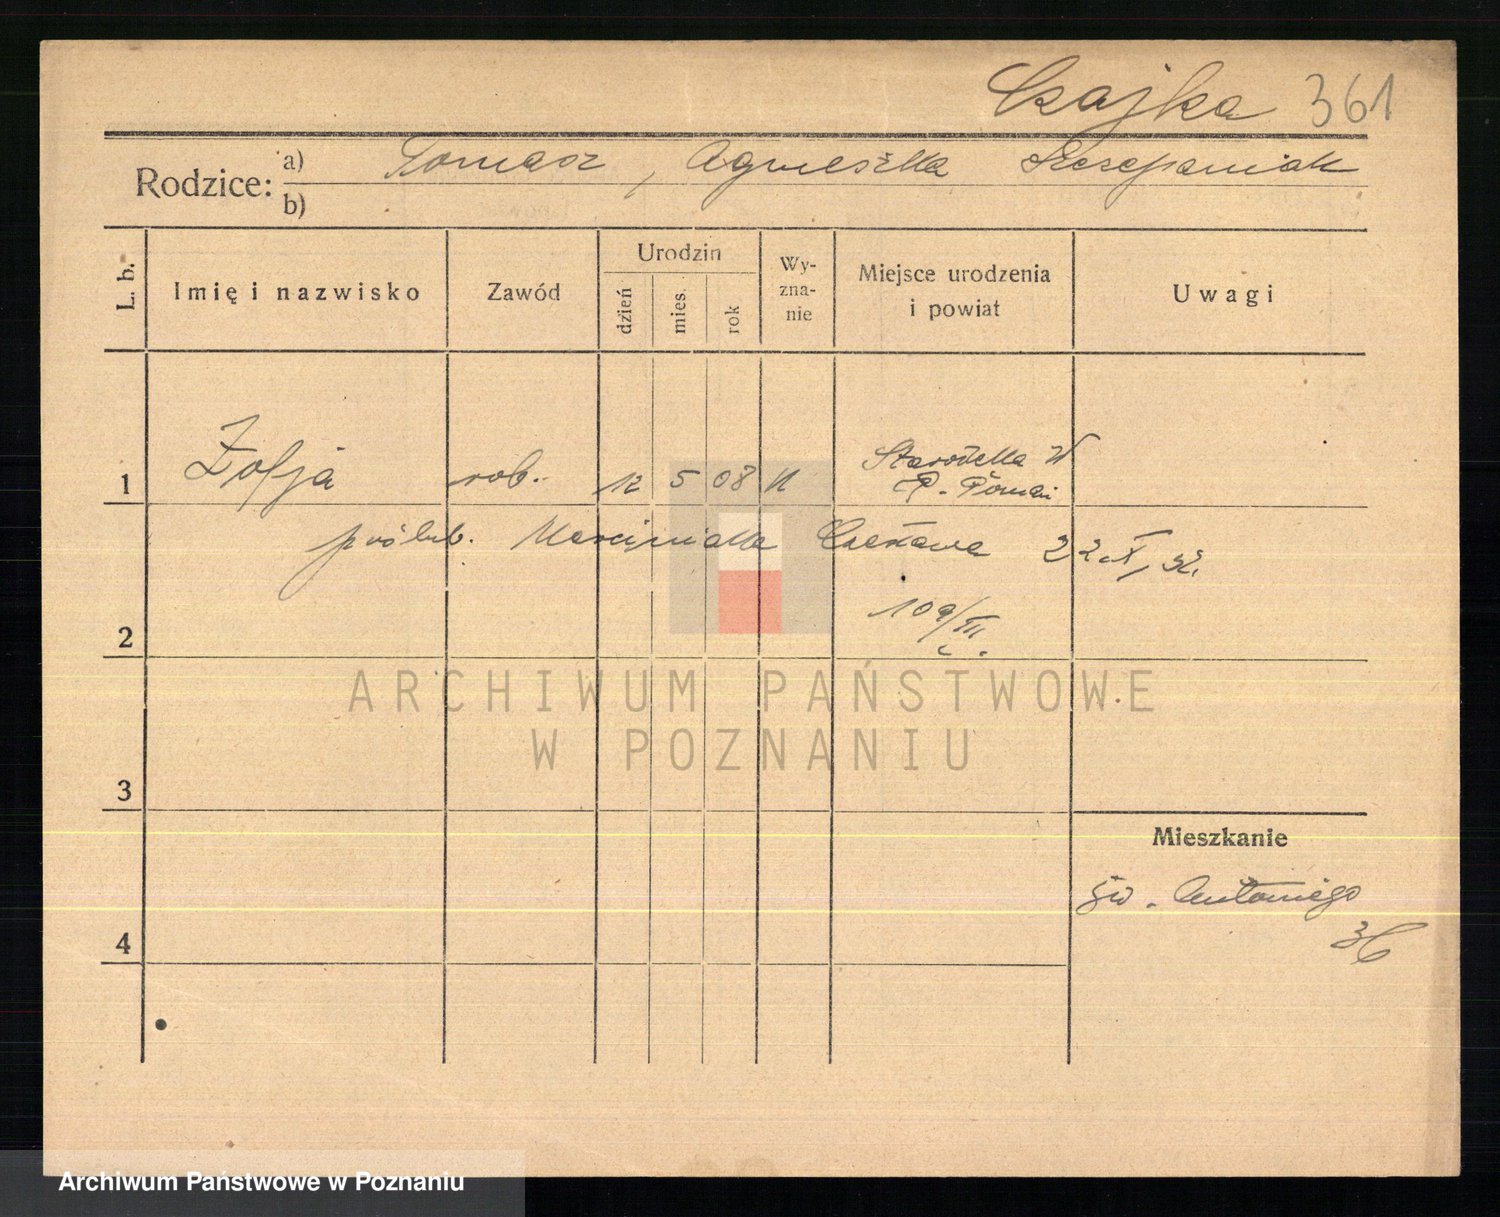 Czajka 361
Rodzice: a) Tomasz, Agnieszka Szczepaniak
b)
L. b.
Imię i nazwisko
Zawód
Urodzin
dzień
mies.
rok
Wy-
zna-
nie
Miejsce urodzenia
i powiat
Uwagi
1 Zofja rob. 12 5 08 k Starołeka W
P. Poznań
poślub. Marciniaka Czesława 22.X, 32.
109/III.
2
ARCHIWUM PAŃSTWOWE
W POZNANIU
3
Mieszkanie
św. Antoniego
36
4
Archiwum Państwowe w Poznaniu